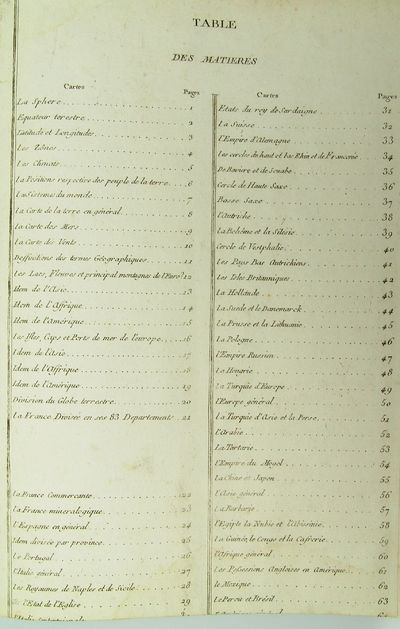 TABLE
DES MATIERES
Cartes Pages
La Sphere 1
Equateur terestre 2
Latitude et Longitudes 3
Les Zônes 4
Les Climats 5
La Positions respective des peuple de la terre 6
Les Sistème du monde 7
La Carte de la terre en général 8
La Carte des Mers 9
La Carte des Vents 10
Deffinitions des termes Géographiques 11
Les Lacs, Fleuves et principal montagnes de l'Euro 12
Idem de l'Asie 13
Idem de l'Affrique 14
Idem de l'Amérique 15
Les Isles, Caps et Ports de mer de l'europe 16
Idem de l'Asie 17
Idem de l'Affrique 18
Idem de l'Amérique 19
Division du Globe terrestre 20
La France Divisée en ses 83 Departements 21
La France Commerçante 22
La France mineralogique 23
L'Espagne en général 24
Idem divisée par province 25
Le Portugal 26
L'Italie général 27
Les Royaumes de Naples et de Sicile 28
l'Etat de l'Eglise 29
Cartes Pages
Etats du roy de Sardaigne 31
La Suisse 32
L'Empire d'Alemagne 33
Les cercles du haut et bas Rhin et de Franconie 34
De Baviere et de Souabe 35
Cercle de Haute Saxe 36
Basse Saxe 37
l'Autriche 38
La Bohême et la Silesie 39
Cercle de Vestphalie 40
Les Pays Bas Autrichiens 41
Les Isles Britanniques 42
La Hollande 43
La Suede et le Danemarck 44
La Prusse et la Lithuanie 45
La Pologne 46
L'Empire Russien 47
La Hongrie 48
La Turquie d'Europe 49
L'Europe général 50
La Turquie d'Asie et la Perse 51
L'Arabie 52
La Tartarie 53
L'Empire du Mogol 54
La Chine et Japon 55
L'Asie général 56
La Barbarie 57
l'Egipte la Nubie et l'Abissinie 58
La Guinée, le Congo et la Cafrerie 59
L'Afrique général 60
Les Possessions Angloises en Amérique 61
le Mexique 62
Le Perou et Brésil 63